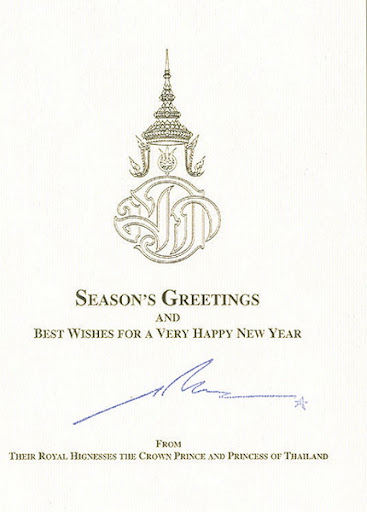 SEASON'S GREETINGS
AND
BEST WISHES FOR A VERY HAPPY NEW YEAR
FROM
THEIR ROYAL HIGNESSES THE CROWN PRINCE AND PRINCESS OF THAILAND